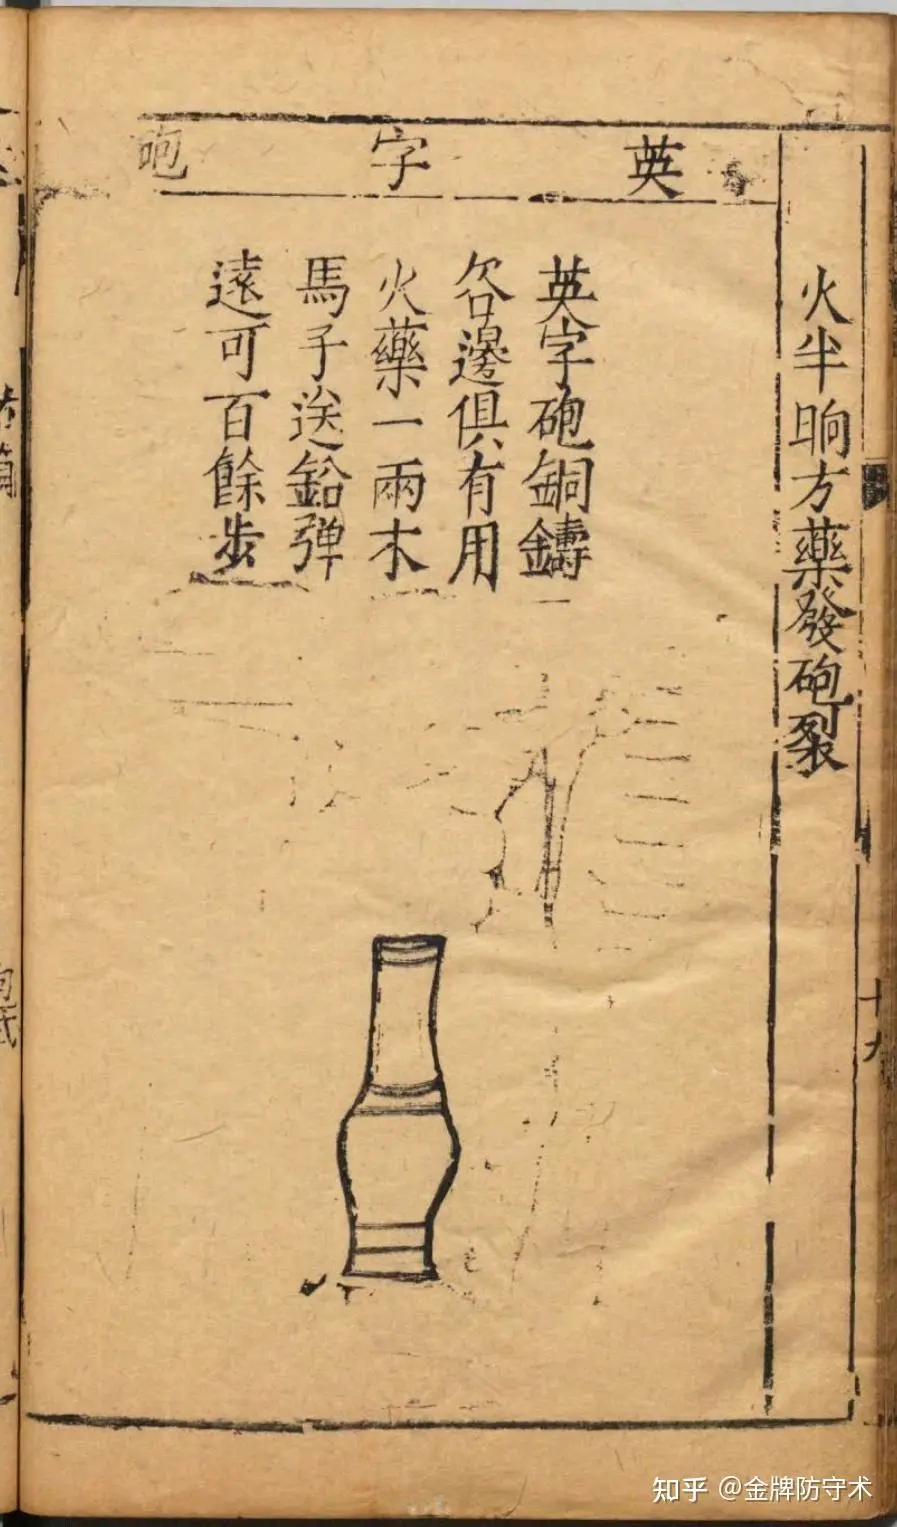 火半晌方藥發砲裂
英字砲
英字砲銅鑄
各邊俱有用
火藥一兩木
馬子送鉛弹
遠可百餘步
十九
知乎 @金牌防守术